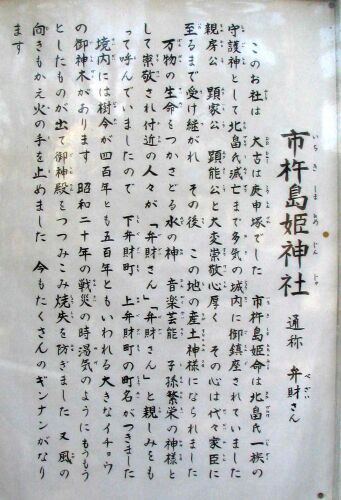 市杵島姫神社 通称 弁財さん
このお社は 大古は庚申塚でした 市杵島姫命は北畠氏一族の
守護神として北畠氏滅亡まで多気の城内に御鎮座されていました
親房公 顕家公 顕能公と大変崇敬心厚く その心は代々家臣に
至るまで受け継がれ その後 この地の産土神様になられました
万物の生命をつかさどる水の神 音楽芸能 子孫繁栄の神様と
して崇敬され付近の人々が「弁財さん」「弁財さん」と親しみをも
って呼んでいましたので 下弁財町 上弁財町の町名がつきました
境内には樹令が四百年とも五百年ともいわれる大きなイチョウ
の御神木があります 昭和二十年の戦災の時湯気のようにもうもう
としたものが出て御神殿をつつみこみ焼失を防ぎました 又風の
向きもかえ火の手を止めました 今もたくさんのギンナンがなり
ます